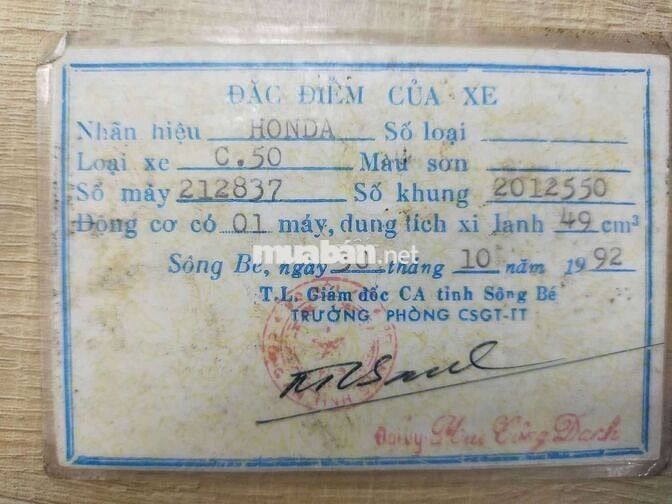 ĐẶC ĐIỂM CỦA XE
Nhãn hiệu HONDA Số loại
Loại xe C.50 Màu sơn
Số máy 212837 Số khung 2012550
Động cơ có 01 máy, dung tích xi lanh 49 cm³
muaban.net
Sông Bé, ngày tháng 10 năm 1992
T.L. Giám đốc CA tỉnh Sông Bé
TRƯỞNG PHÒNG CSGT-TT
Đại úy Công Danh